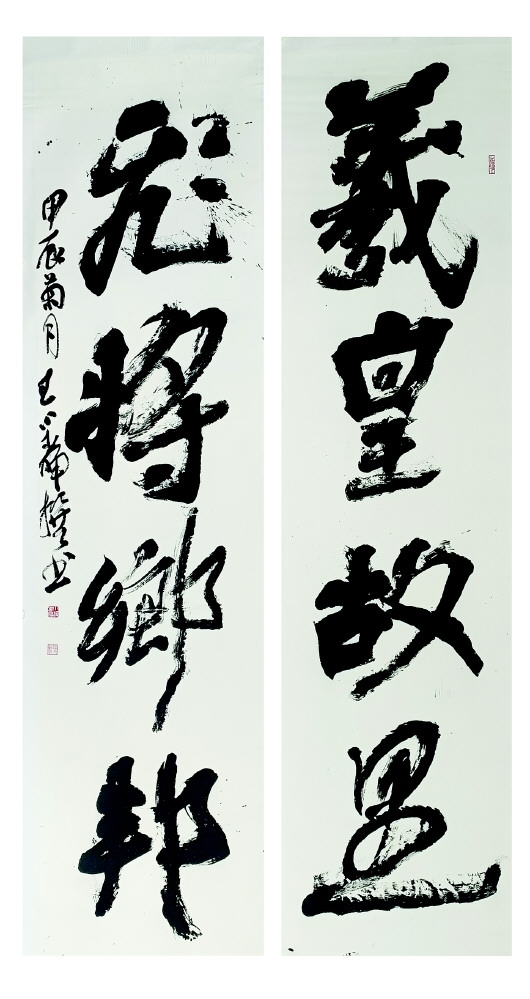 羲皇故里
飛將鄉邦
甲辰菊月 王 撰书